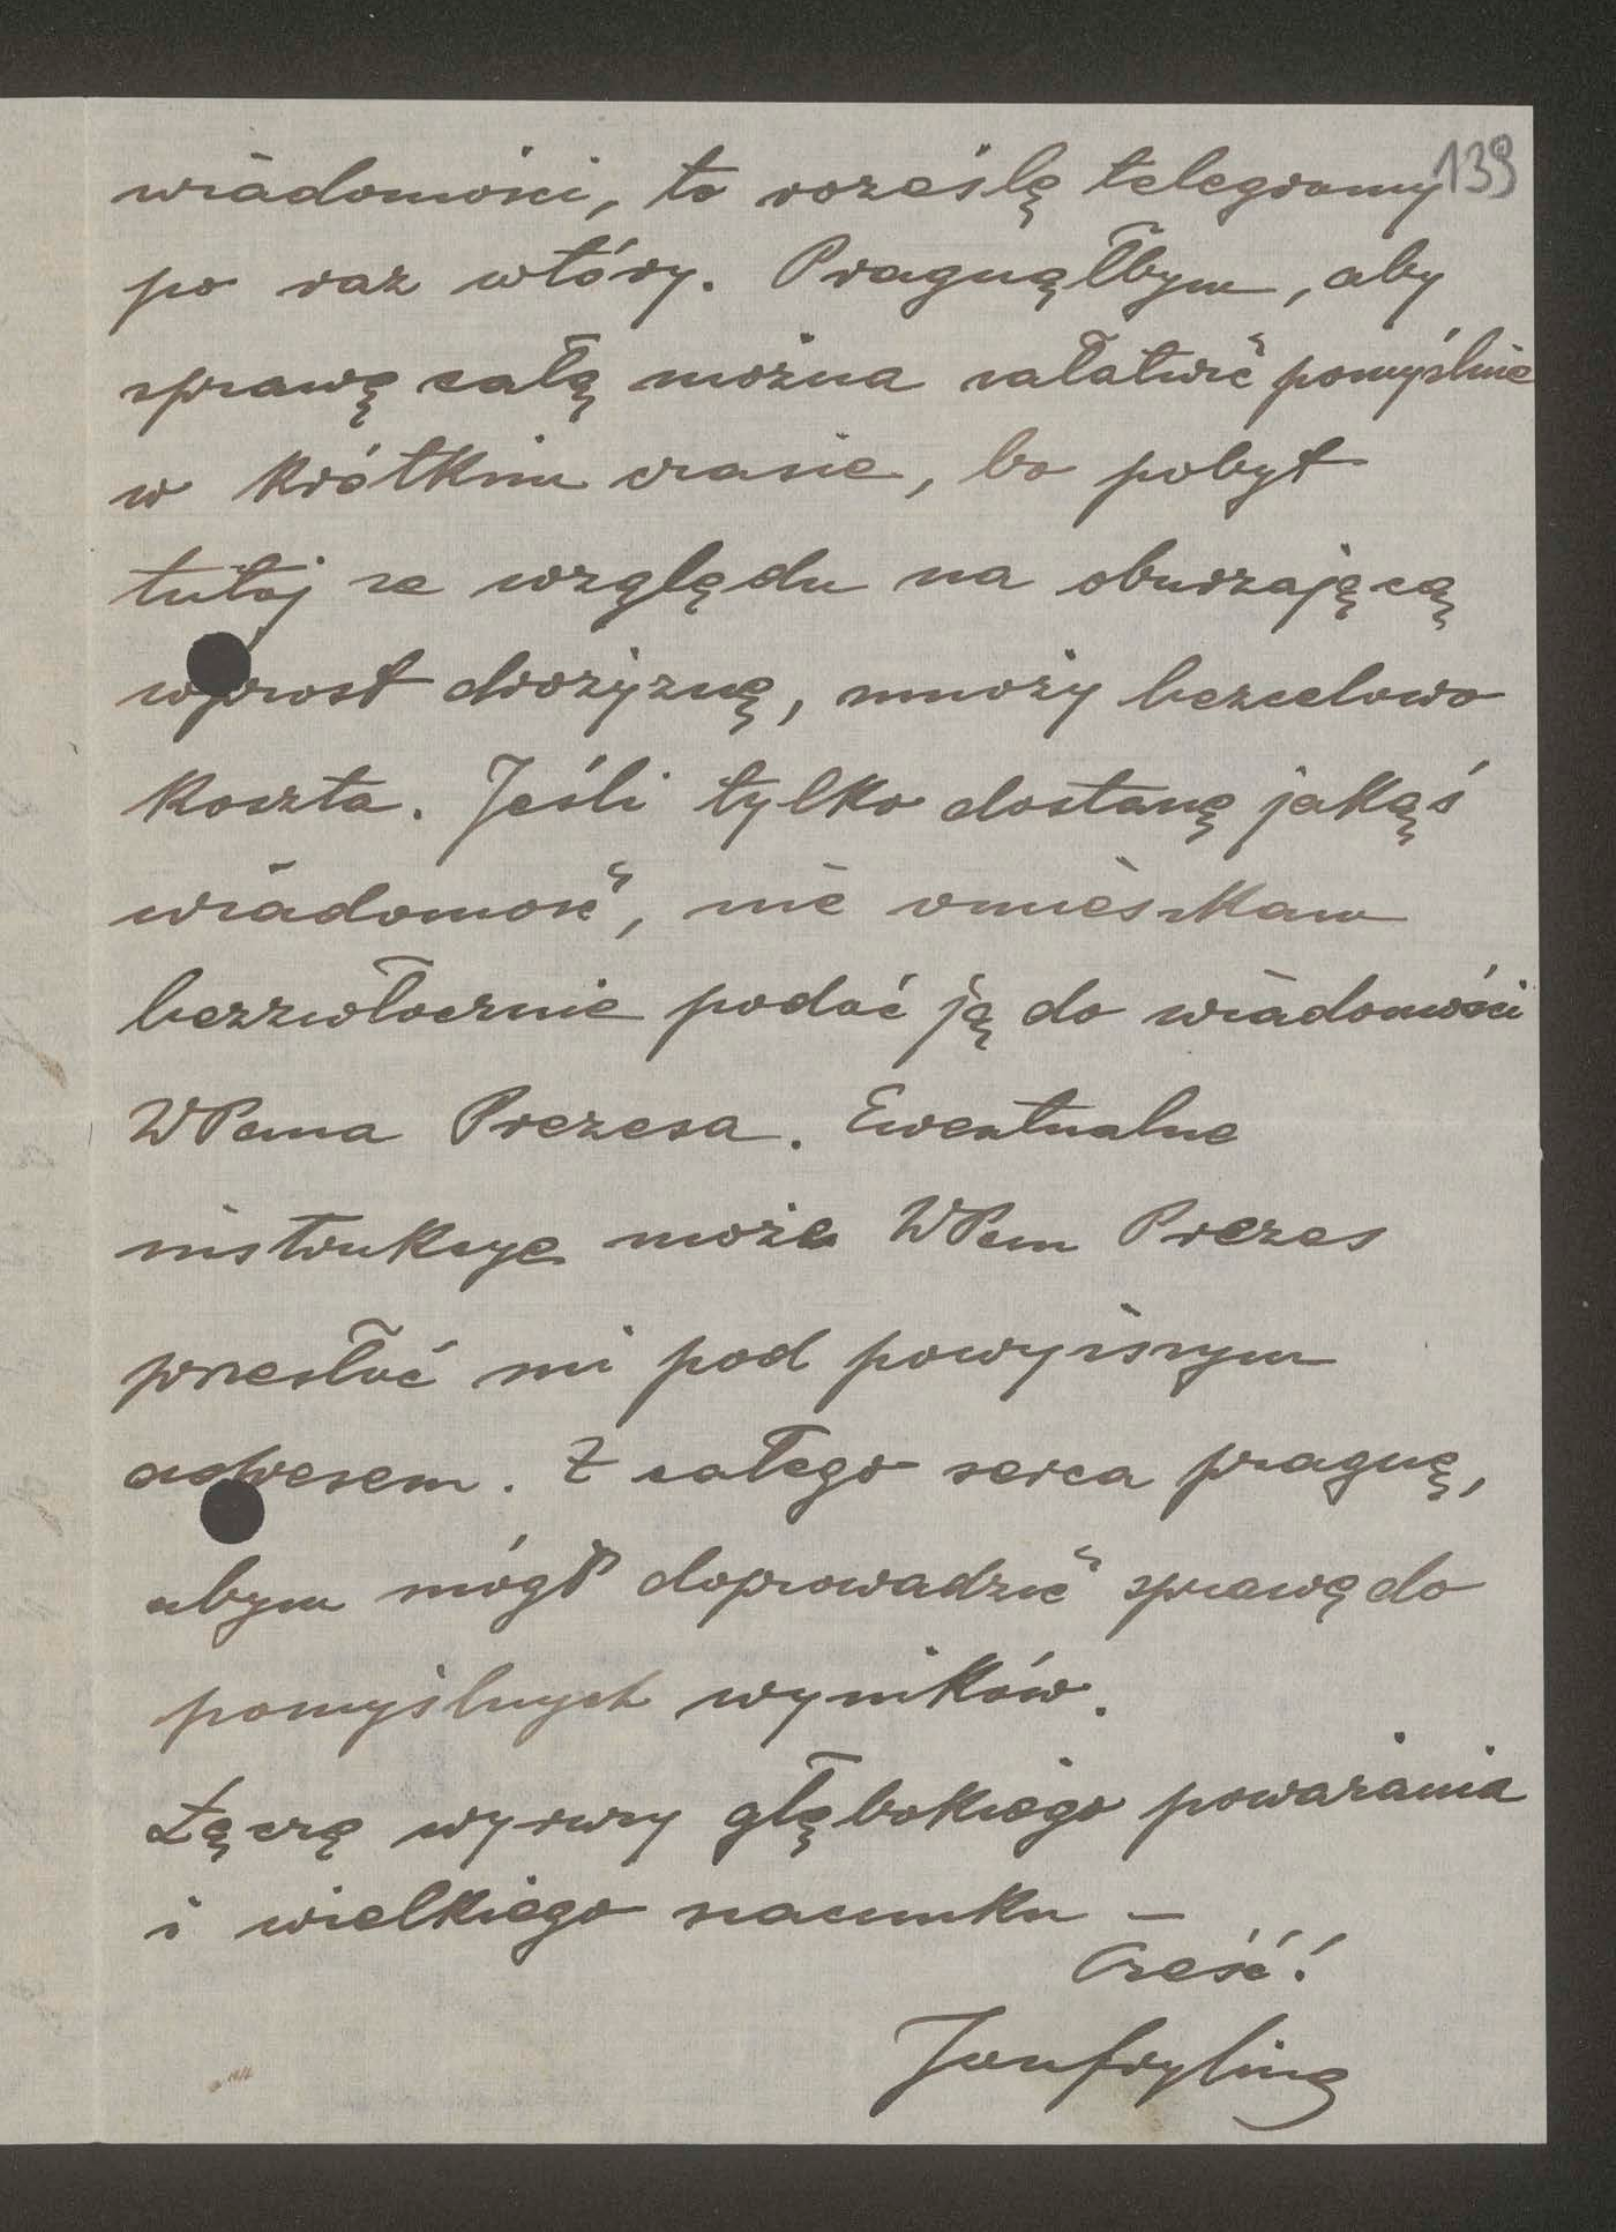 139
wiadomości, to roześlę telegramy
po raz wtóry. Pragnąłbym, aby
sprawę całą można załatwić pomyślnie
w krótkim czasie, bo pobyt
tutaj ze względu na oburzającą
wprost drożyznę, mnoży bezcelowo
koszta. Jeśli tylko dostanę jakąś
wiadomość, nie omieszkam
bezzwłocznie podać ją do wiadomości
WPana Prezesa. Ewentualne
instrukcye może WPan Prezes
przesłać mi pod powyższym
adresem. Z całego serca pragnę,
abym mógł doprowadzić sprawę do
pomyślnych wyników.
Łączę wyrazy głębokiego poważania
i wielkiego szacunku –
Cześć!
Jan Fryling